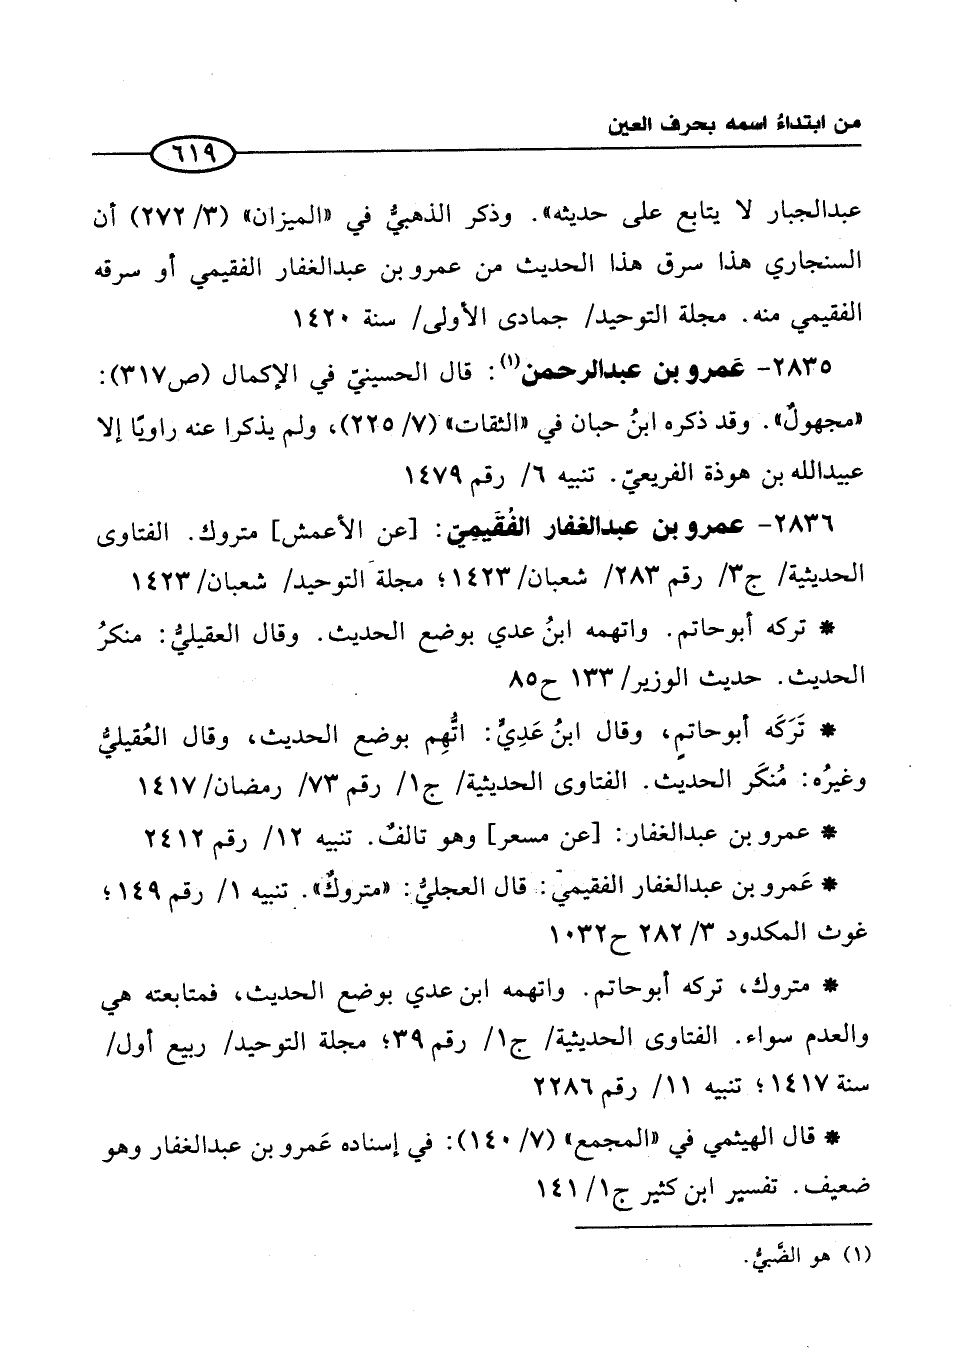 من ابتداءُ اسمه بحرف العين
٦١٩
عبدالجبار لا يتابع على حديثه». وذكر الذهبيُّ في «الميزان» (٣/ ٢٧٢) أن
السنجاري هذا سرق هذا الحديث من عمرو بن عبدالغفار الفقيمي أو سرقه
الفقيمي منه. مجلة التوحيد/ جمادى الأولى/ سنة ١٤٢٠
٢٨٣٥- عَمرو بن عبدالرحمن(١): قال الحسينيّ في الإكمال (ص٣١٧):
«مجهولٌ». وقد ذكره ابنُ حبان في «الثقات» (٧/ ٢٢٥)، ولم يذكرا عنه راويًا إلا
عبيدالله بن هوذة الفريعيّ. تنبيه ٦/ رقم ١٤٧٩
٢٨٣٦- عمرو بن عبدالغفار الفُقَيميّ: [عن الأعمش] متروك. الفتاوى
الحديثية/ ج٣/ رقم ٢٨٣/ شعبان/ ١٤٢٣؛ مجلة التوحيد/ شعبان/ ١٤٢٣
* تركه أبوحاتم. واتهمه ابنُ عدي بوضع الحديث. وقال العقيليُّ: منكرُ
الحديث. حديث الوزير/ ١٣٣ ح٨٥
* تَرَكَه أبوحاتمٍ، وقال ابنُ عَدِيٍّ: اتُّهِم بوضع الحديث، وقال العُقيليُّ
وغيرُه: مُنكَر الحديث. الفتاوى الحديثية/ ج١/ رقم ٧٣/ رمضان/ ١٤١٧
* عمرو بن عبدالغفار: [عن مسعر] وهو تالفٌ. تنبيه ١٢/ رقم ٢٤١٢
* عَمرو بن عبدالغفار الفقيميّ: قال العجليُّ: «متروكٌ». تنبيه ١/ رقم ١٤٩؛
غوث المكدود ٣/ ٢٨٢ ح١٠٣٢
* متروك، تركه أبوحاتم. واتهمه ابن عدي بوضع الحديث، فمتابعته هي
والعدم سواء. الفتاوى الحديثية/ ج١/ رقم ٣٩؛ مجلة التوحيد/ ربيع أول/
سنة ١٤١٧؛ تنبيه ١١/ رقم ٢٢٨٦
* قال الهيثمي في «المجمع» (٧/ ١٤٠): في إسناده عَمرو بن عبدالغفار وهو
ضعيف. تفسير ابن كثير ج١/ ١٤١
(١) هو الضَّبيُّ.